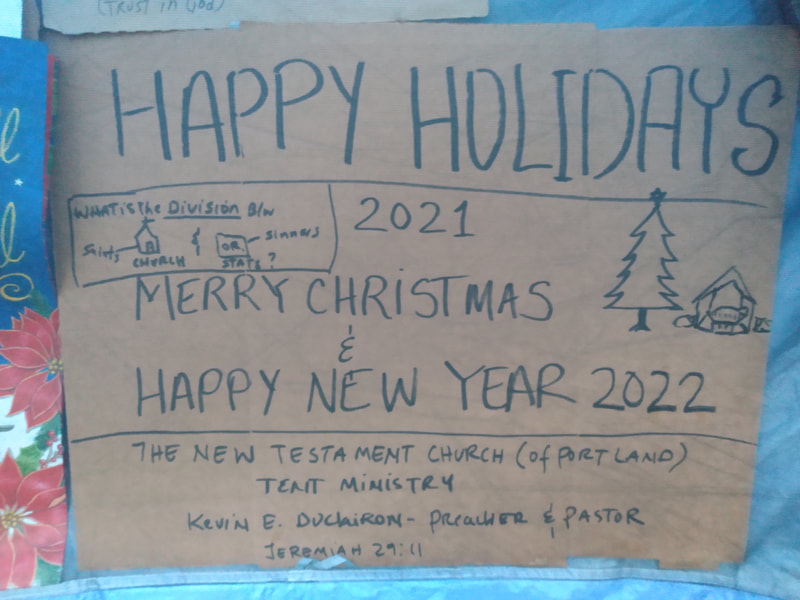 (TRUST in God)
HAPPY HOLIDAYS
WHAT is the Division B/w
Saints CHURCH & OR STATE? Sinners
2021
MERRY CHRISTMAS
&
HAPPY NEW YEAR 2022
THE NEW TESTAMENT CHURCH (of PORTLAND)
TENT MINISTRY
KEVIN E. DUCKIRON - PREACHER & PASTOR
JEREMIAH 29:11